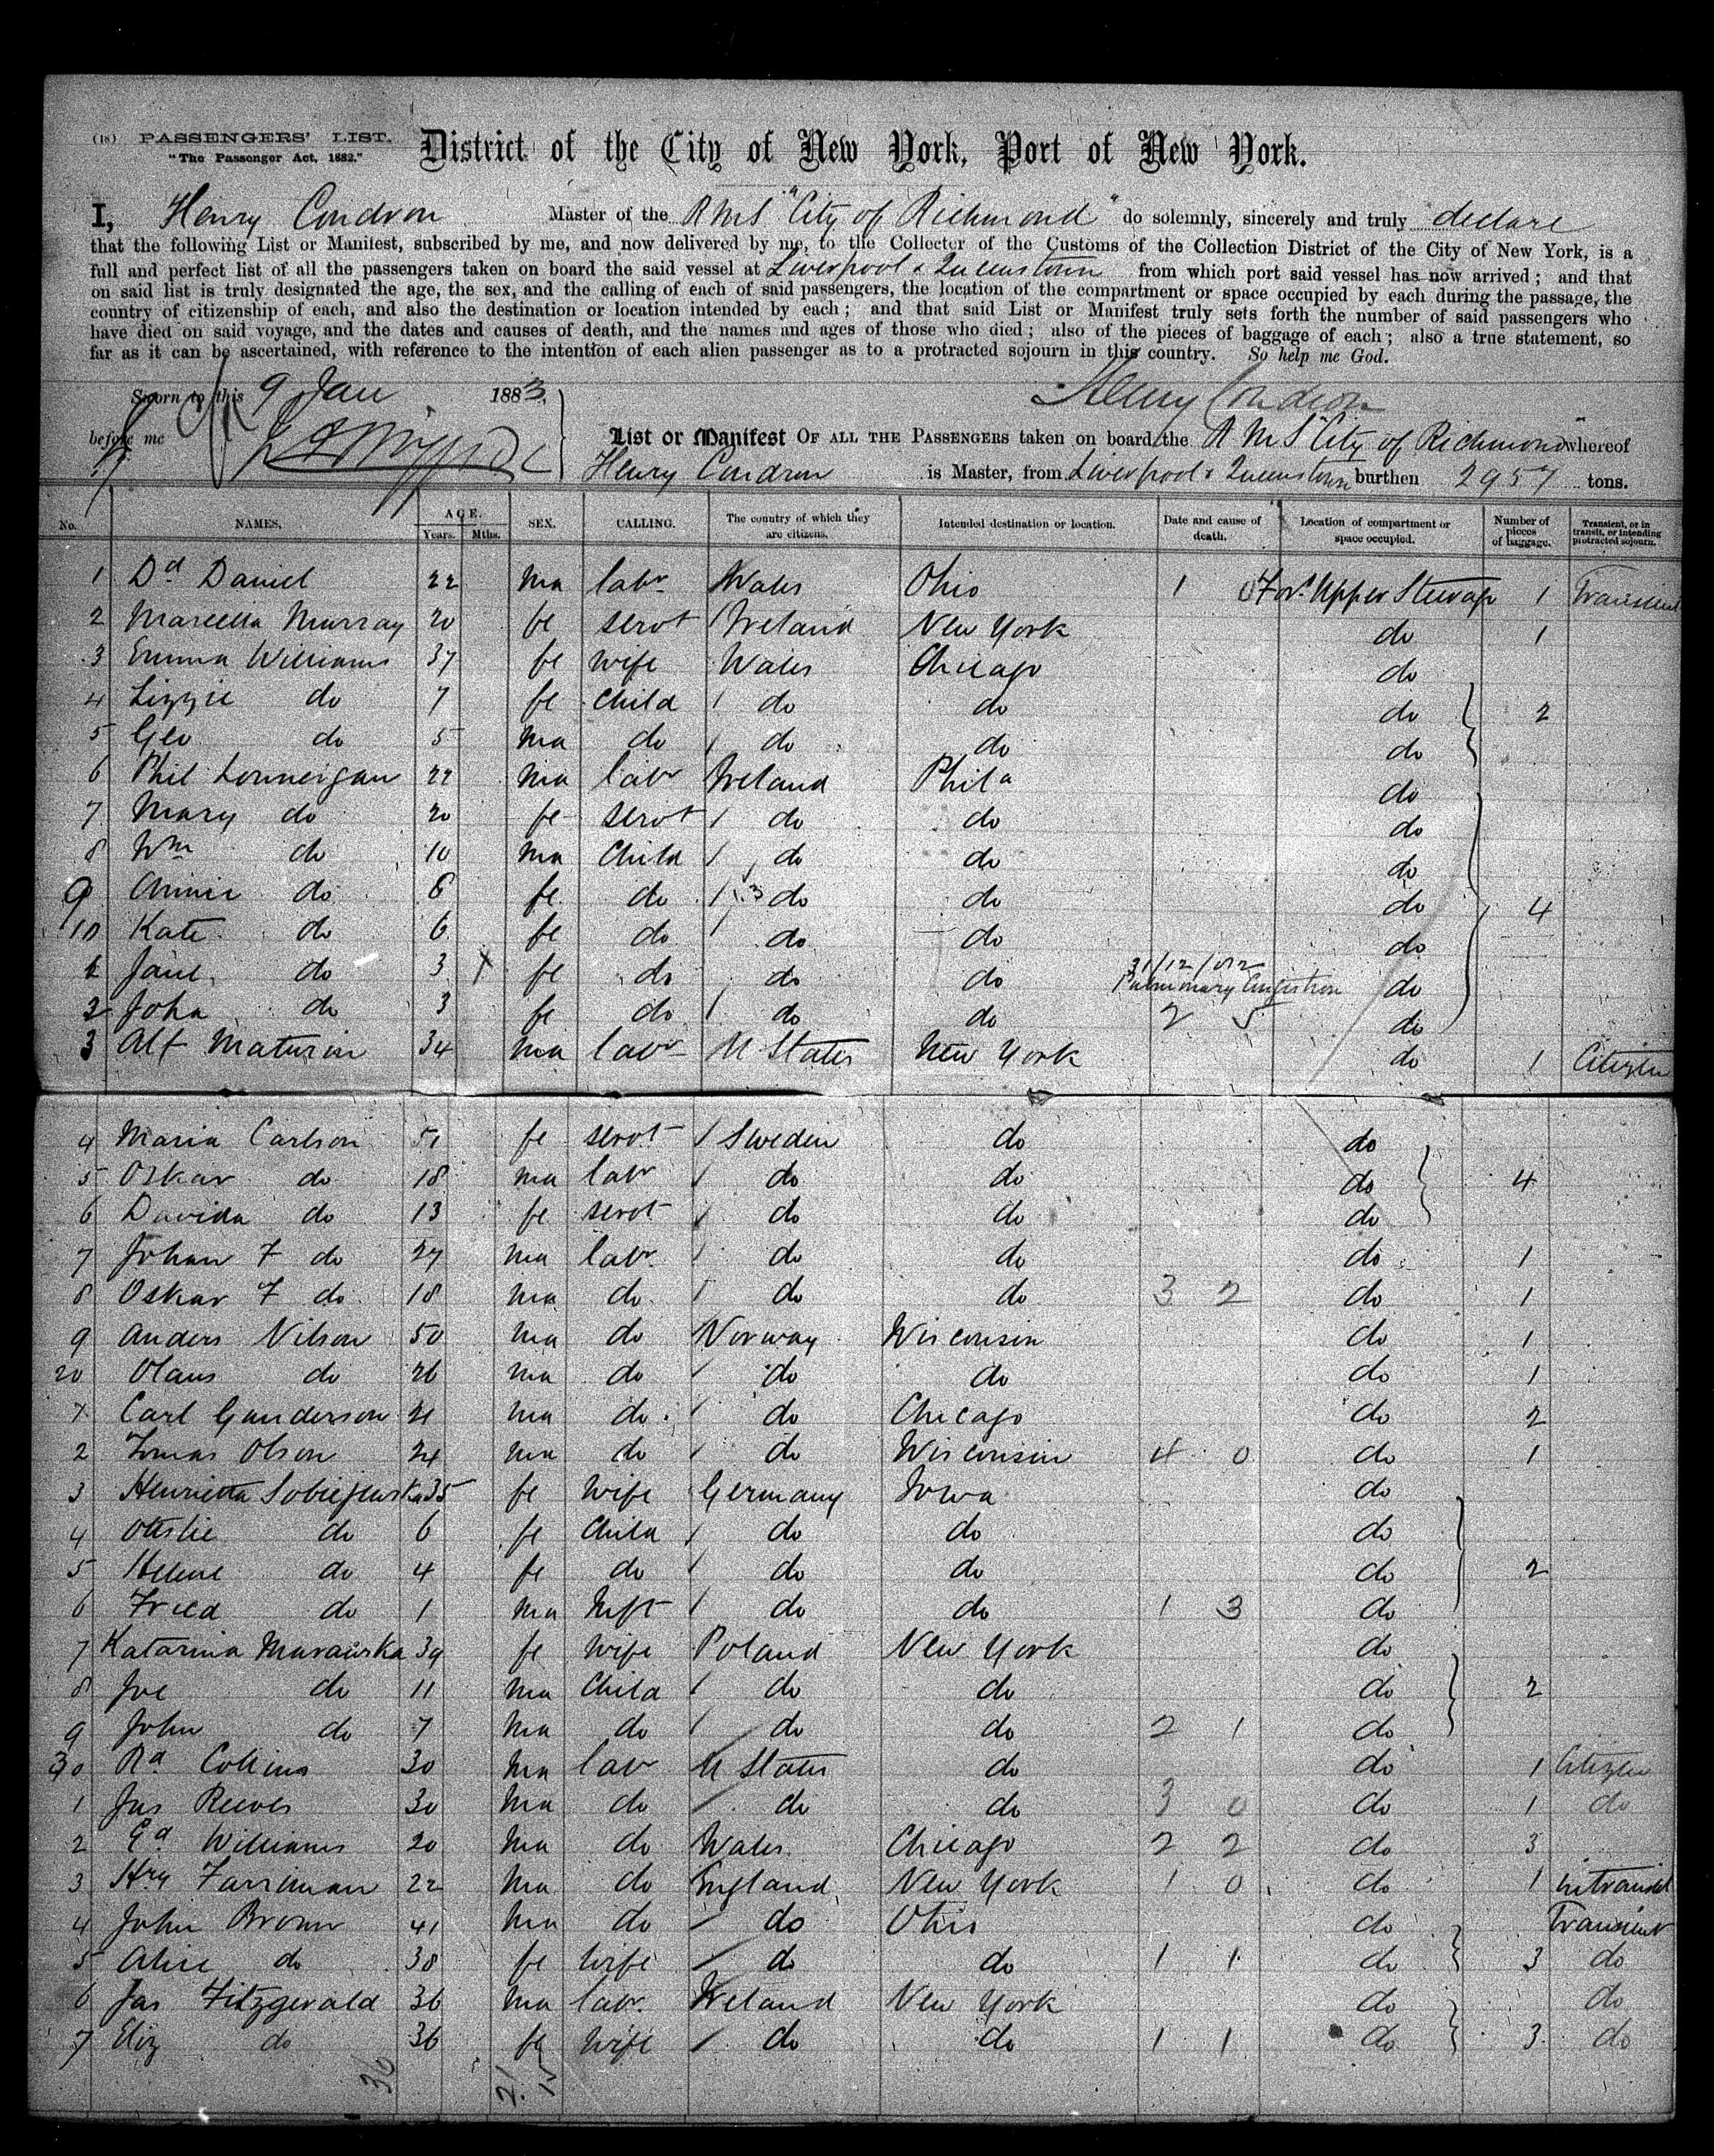 (18) PASSENGERS' LIST.
"The Passenger Act, 1882."
District of the City of New York, Port of New York.
I, Henry Condron Master of the RMS "City of Richmond" do solemnly, sincerely and truly declare
that the following List or Manifest, subscribed by me, and now delivered by me, to the Collector of the Customs of the Collection District of the City of New York, is a
full and perfect list of all the passengers taken on board the said vessel at Liverpool & Queenstown from which port said vessel has now arrived; and that
on said list is truly designated the age, the sex, and the calling of each of said passengers, the location of the compartment or space occupied by each during the passage, the
country of citizenship of each, and also the destination or location intended by each; and that said List or Manifest truly sets forth the number of said passengers who
have died on said voyage, and the dates and causes of death, and the names and ages of those who died; also of the pieces of baggage of each; also a true statement, so
far as it can be ascertained, with reference to the intention of each alien passenger as to a protracted sojourn in this country. So help me God.
Sworn to this 9 Jan 1883 Henry Condron
before me
List or Manifest OF ALL THE PASSENGERS taken on board the RMS "City of Richmond" whereof
Henry Condron is Master, from Liverpool & Queenstown burthen 2957 tons.
No. NAMES. AGE. Years. Mths. SEX. CALLING. The country of which they are citizens. Intended destination or location. Date and cause of death. Location of compartment or space occupied. Number of pieces of baggage. Transient, or in transit, or intending protracted sojourn.
1 Dd Daniel 22 ma labr Wales Ohio 1 0 For. Upper Steerage 1 Transient
2 Marcella Murray 20 fe servt Ireland New York do 1
3 Emma Williams 37 fe wife Wales Chicago do
4 Lizzie do 7 fe child do do do 2
5 Geo do 5 ma do do do do
6 Phil Lonneigan 22 ma labr Ireland Phila do
7 Mary do 20 fe servt do do do
8 Wm do 10 ma Child do do do
9 Annie do 8 fe do do do do 4
10 Kate do 6 fe do do do do
1 Jane do 3 fe do do do 31/12/82 Pulmonary Congestion do
2 John do 3 fe do do do 2 5 do
3 Alf Maturin 34 ma labr U States New York do 1 Citizen
4 Maria Carlson 51 fe servt Sweden do do
5 Oskar do 18 ma labr do do do 4
6 Davida do 13 fe servt do do do
7 Johan F do 27 ma labr do do do 1
8 Oskar F do 18 ma do do do 3 2 do 1
9 Anders Nilson 50 ma do Norway Wisconsin do 1
20 Olaus do 26 ma do do do do 1
1 Carl Gunderson 21 ma do do Chicago do 2
2 Tomas Olson 24 ma do do Wisconsin 4 0 do 1
3 Henrietta Sobiejewska 35 fe wife Germany Iowa do
4 Ottilie do 6 fe Child do do do
5 Helene do 4 fe do do do do 2
6 Fried do 1 ma Inft do do 1 3 do
7 Katarina Murawska 39 fe wife Poland New York do
8 Joe do 11 ma Child do do do 2
9 John do 7 ma do do do 2 1 do
30 Rd Collins 30 ma labr U States do do 1 Citizen
1 Jas Reeves 30 ma do do do 3 0 do 1 do
2 Ed Williams 20 ma do Wales Chicago 2 2 do 3
3 Hry Farriman 22 ma do England New York 1 0 do 1 intransit
4 John Brown 41 ma do do Ohio do Transient
5 Alice do 38 fe wife do do 1 1 do 3 do
6 Jas Fitzgerald 36 ma labr Ireland New York do do
7 Eliz do 36 fe wife do do 1 1 do 3 do
36 21 15